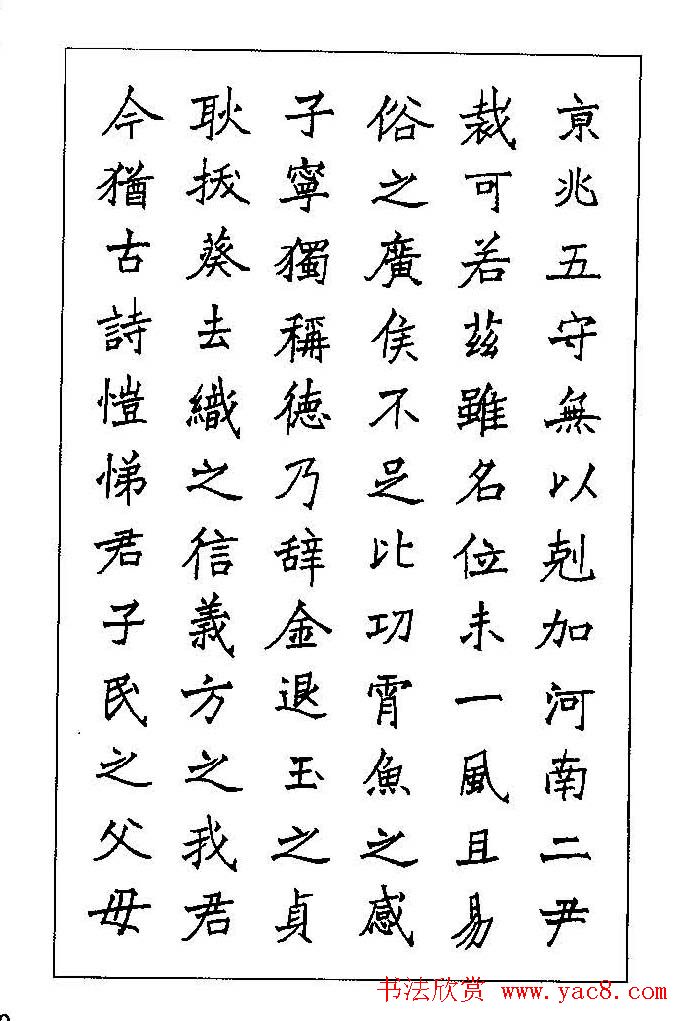 京兆五守無以剋加河南二尹
裁可若茲雖名位未一風且易
俗之廣侯不足比功霄魚之感
子寧獨稱德乃辞金退玉之貞
耿拔葵去織之信義方之我君
今猶古詩愷悌君子民之父母
书法欣赏 www.yac8.com